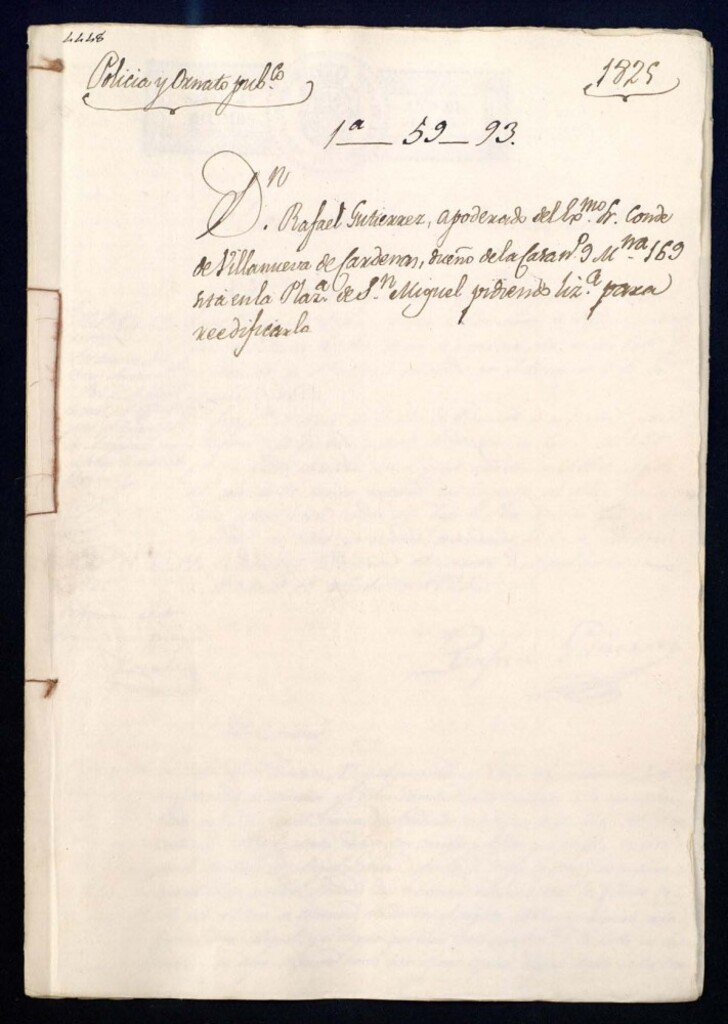 Policia y Ornato pub.co
1825
1a — 59 — 93.
Dn. Rafael Gutierrez, apoderado del Exmo. Sr. Conde
de Villanueva de Cardenas, dueño de la Casa no. 9 Mna 169
sita en la Plaza. de Sn. Miguel pidiendo liz.a para
reedificarla